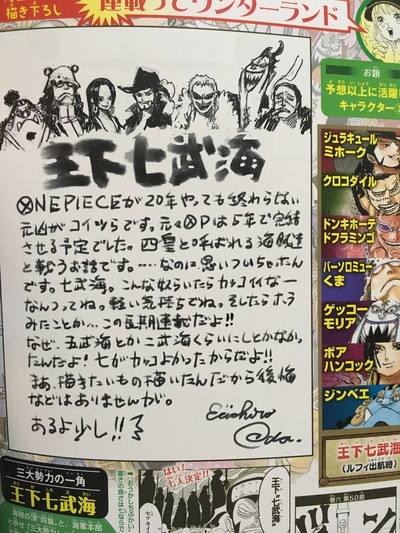 描き下ろし
連載ってワンダーランド
お題
予想以上に活躍
キャラクター
王下七武海
ONE PIECEが20年やっても終わらない
元凶がコイツらです。元々OPは5年で完結
させる予定でした。四皇と呼ばれる海賊達
と戦うお話です。……なのに思いついちゃったん
です。七武海。こんな奴らいたらカッコイイなー
なんつってね。軽い気持ちでね。そしたらホラ
みたことか…この長期連載だよ!!
なぜ、五武海とか二武海くらいにしとかなかっ
たんだよ!七がカッコよかったからだよ!!
まぁ、描きたいもの描いたんだから後悔
などはありませんが。
あるよ少し!!
Eiichiro
Oda.
ジュラキュール
ミホーク
クロコダイル
ドンキホーテ
ドフラミンゴ
バーソロミュー
くま
ゲッコー
モリア
ボア
ハンコック
ジンベエ
王下七武海
(ルフィ出航時)
三大勢力の一角
王下七武海
はい!
七人決定!!
王下"七武海"
巻六 第50話